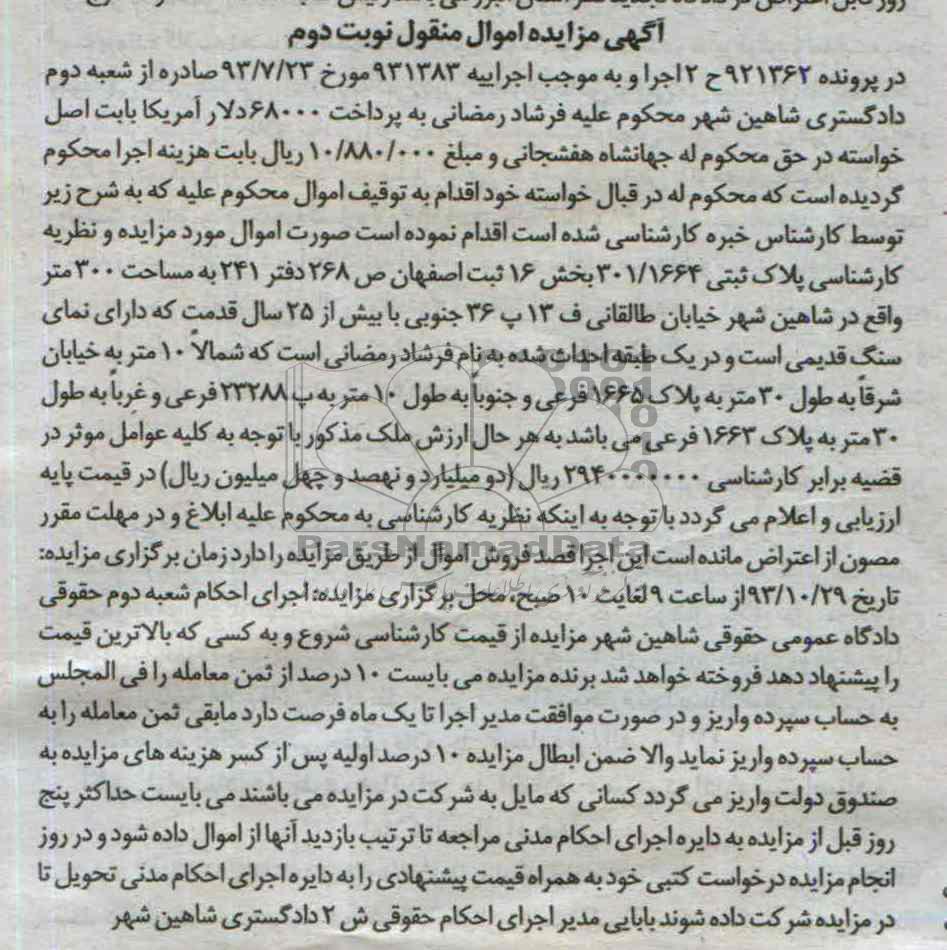 آگهی مزایده اموال منقول نوبت دوم
در پرونده ۹۲۱۳۶۲ح ۲ اجرا و به موجب اجراییه ۹۳۱۳۸۳ مورخ ۹۳/۷/۲۳ صادره از شعبه دوم
دادگستری شاهین شهر محکوم علیه فرشاد رمضانی به پرداخت ۶۸۰۰۰ دلار آمریکا بابت اصل
خواسته در حق محکوم له جهانشاه هفشجانی و مبلغ ۱۰/۸۸۰/۰۰۰ ریال بابت هزینه اجرا محکوم
گردیده است که محکوم له در قبال خواسته خود اقدام به توقیف اموال محکوم علیه که به شرح زیر
توسط کارشناس خبره کارشناسی شده است اقدام نموده است صورت اموال مورد مزایده و نظریه
کارشناسی پلاک ثبتی ۳۰۱/۱۶۶۴ بخش ۱۶ ثبت اصفهان ص ۲۶۸ دفتر ۲۴۱ به مساحت ۳۰۰ متر
واقع در شاهین شهر خیابان طالقانی ف ۱۳ پ ۳۶ جنوبی با بیش از ۲۵ سال قدمت که دارای نمای
سنگ قدیمی است و در یک طبقه احداث شده به نام فرشاد رمضانی است که شمالاً ۱۰ متر به خیابان
شرقاً به طول ۳۰ متر به پلاک ۱۶۶۵ فرعی و جنوباً به طول ۱۰ متر به پ ۲۳۲۸۸ فرعی و غرباً به طول
۳۰ متر به پلاک ۱۶۶۳ فرعی می باشد به هر حال ارزش ملک مذکور با توجه به کلیه عوامل موثر در
قضیه برابر کارشناسی ۲۹۴۰۰۰۰۰۰۰ ریال (دو میلیارد و نهصد و چهل میلیون ریال) در قیمت پایه
ارزیابی و اعلام می گردد با توجه به اینکه نظریه کارشناسی به محکوم علیه ابلاغ و در مهلت مقرر
ParsNamadData
مصون از اعتراض مانده است این اجرا قصد فروش اموال از طریق مزایده را دارد زمان برگزاری مزایده:
تاریخ ۹۳/۱۰/۲۹ از ساعت ۹ لغایت ۱۰ صبح، محل برگزاری مزایده: اجرای احکام شعبه دوم حقوقی
دادگاه عمومی حقوقی شاهین شهر مزایده از قیمت کارشناسی شروع و به کسی که بالاترین قیمت
را پیشنهاد دهد فروخته خواهد شد برنده مزایده می بایست ۱۰ درصد از ثمن معامله را فی المجلس
به حساب سپرده واریز و در صورت موافقت مدیر اجرا تا یک ماه فرصت دارد مابقی ثمن معامله را به
حساب سپرده واریز نماید والا ضمن ابطال مزایده ۱۰ درصد اولیه پس از کسر هزینه های مزایده به
صندوق دولت واریز می گردد کسانی که مایل به شرکت در مزایده می باشند می بایست حداکثر پنج
روز قبل از مزایده به دایره اجرای احکام مدنی مراجعه تا ترتیب بازدید آنها از اموال داده شود و در روز
انجام مزایده درخواست کتبی خود به همراه قیمت پیشنهادی را به دایره اجرای احکام مدنی تحویل تا
در مزایده شرکت داده شوند بابایی مدیر اجرای احکام حقوقی ش ۲ دادگستری شاهین شهر